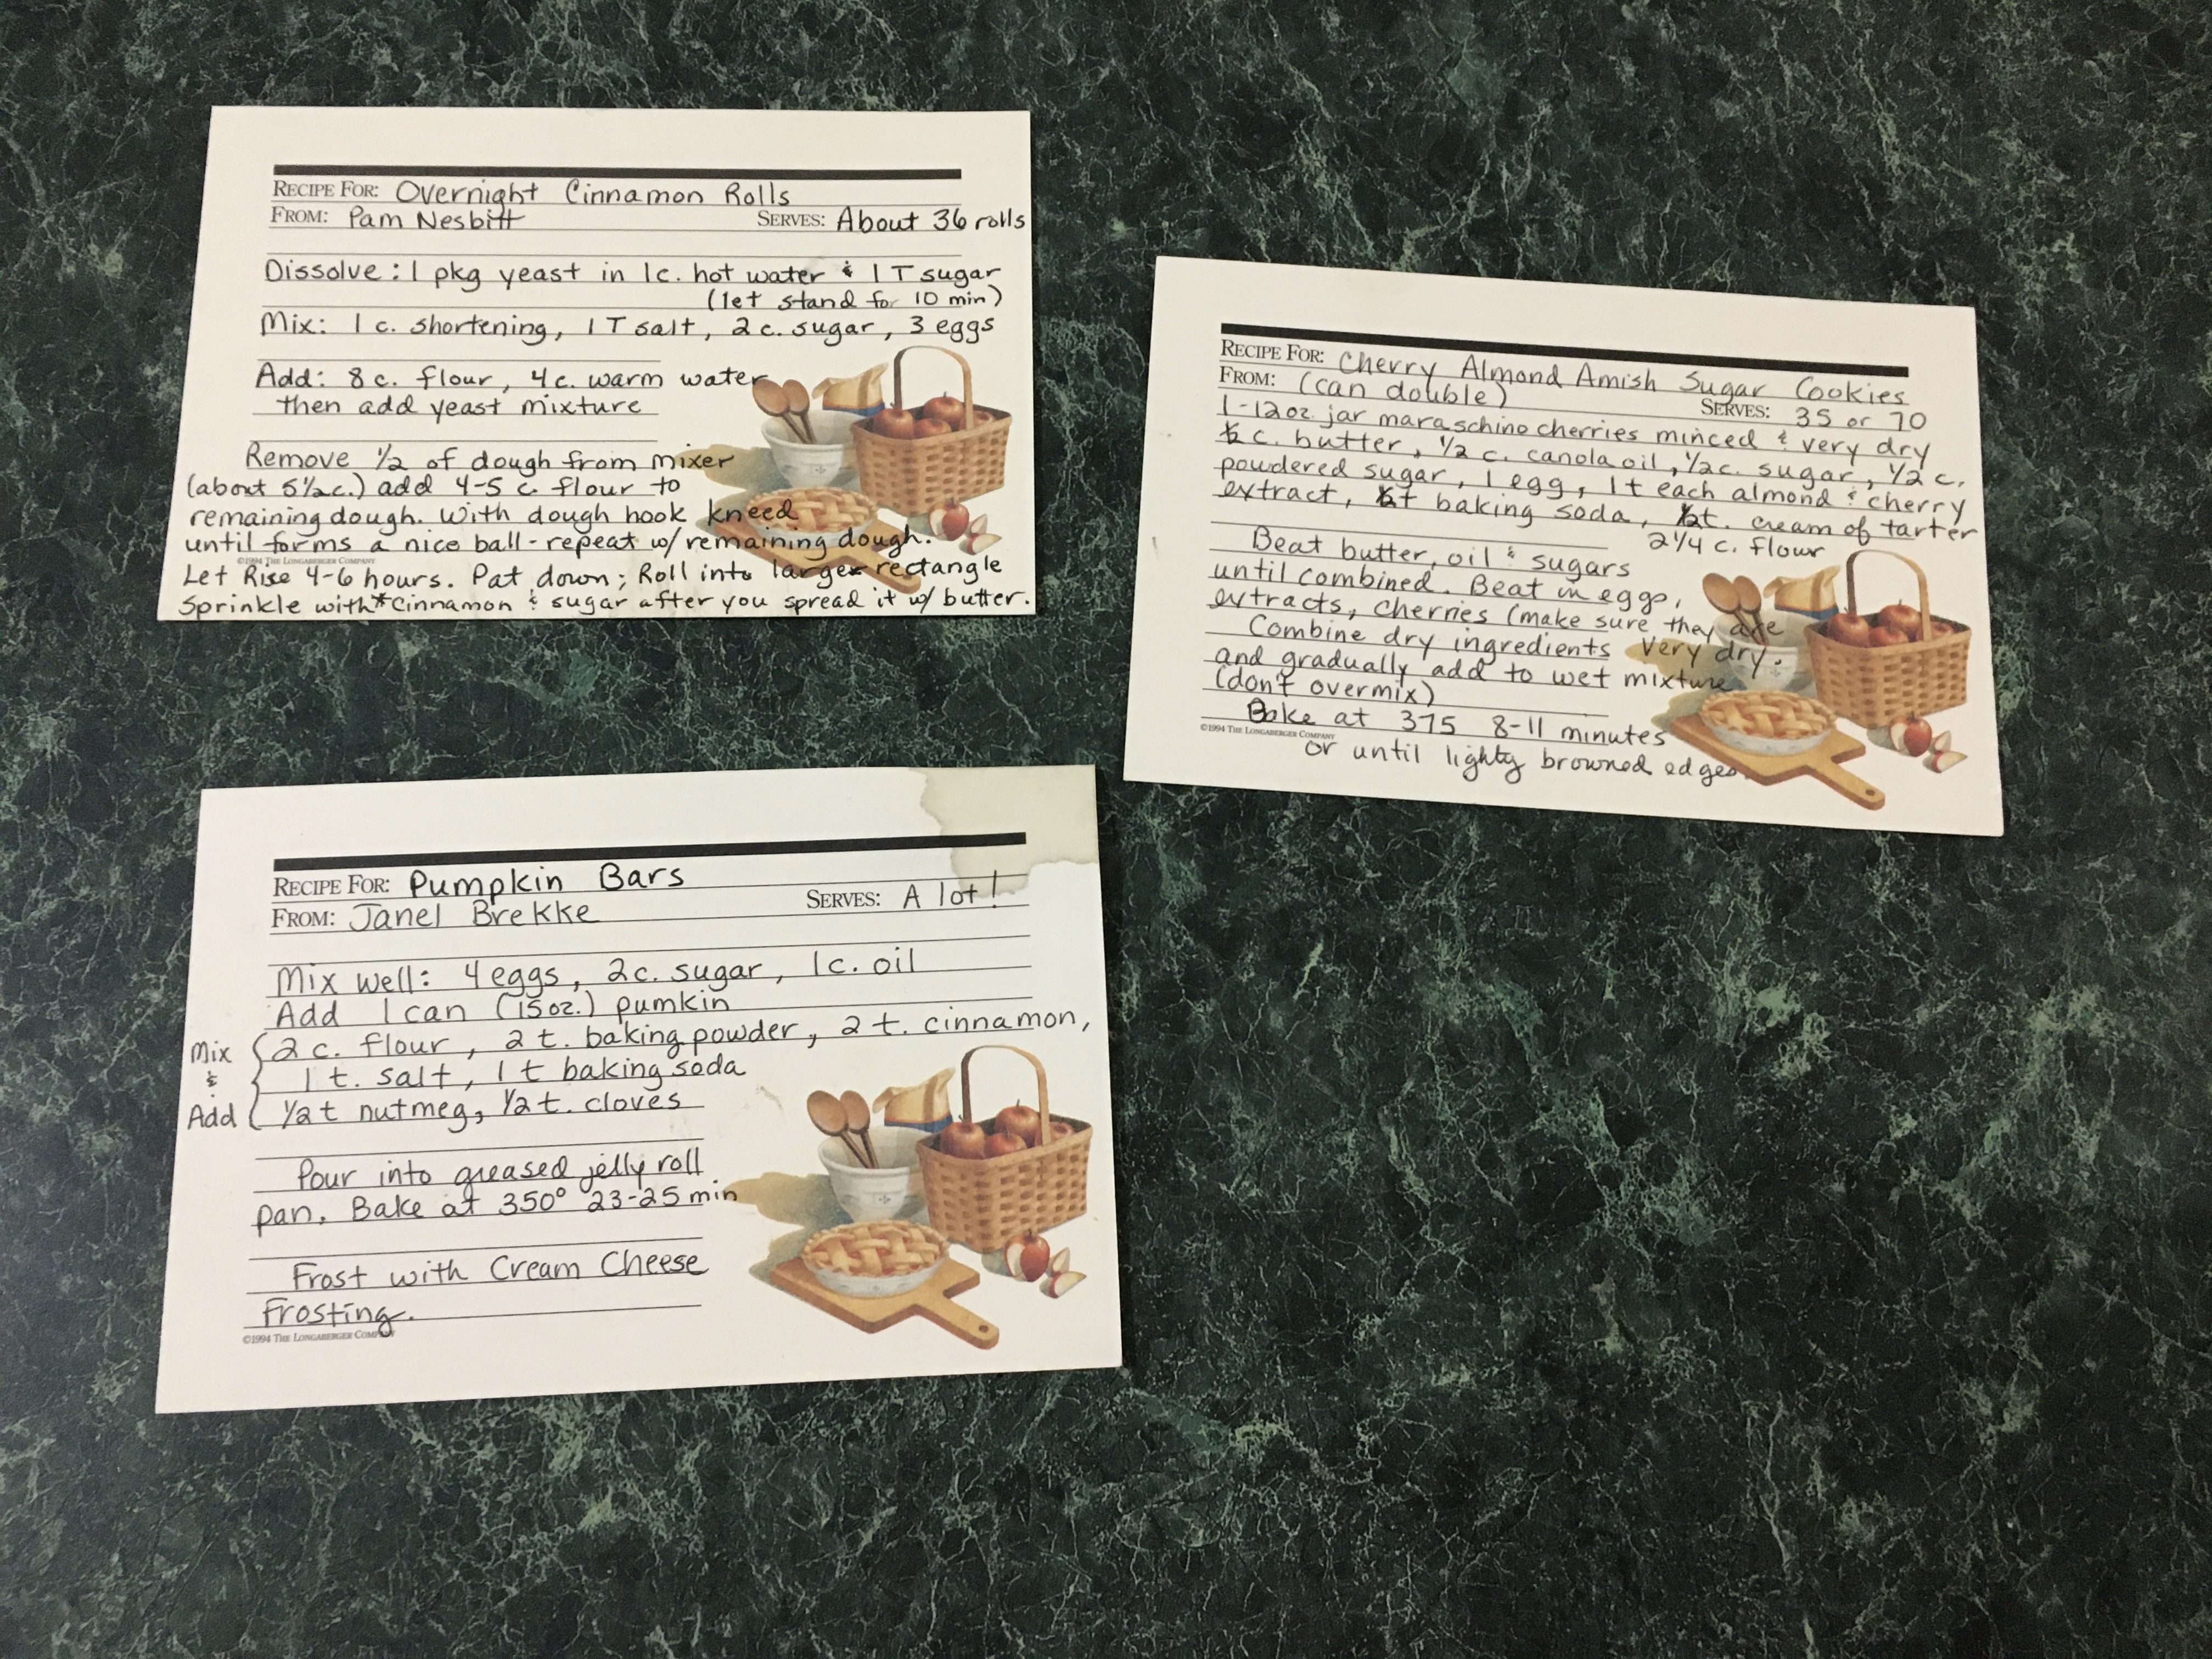 RECIPE FOR: Overnight Cinnamon Rolls
FROM: Pam Nesbitt SERVES: About 36 rolls
Dissolve: 1 pkg yeast in 1c. hot water & 1 T sugar
(let stand for 10 min)
Mix: 1 c. shortening, 1 T salt, 2 c. sugar, 3 eggs
Add: 8 c. flour, 4 c. warm water
then add yeast mixture
Remove 1/2 of dough from mixer
(about 5 1/2 c.) add 4-5 c. flour to
remaining dough. With dough hook kneed
until forms a nice ball - repeat w/ remaining dough.
©1994 THE LONGABERGER COMPANY
Let Rise 4-6 hours. Pat down; Roll into large rectangle
Sprinkle with *cinnamon & sugar after you spread it w/ butter.
RECIPE FOR: Cherry Almond Amish Sugar Cookies
FROM: (can double) SERVES: 35 or 70
1-12oz. jar maraschino cherries minced & very dry
1/2 c. butter, 1/2 c. canola oil, 1/2 c. sugar, 1/2 c.
powdered sugar, 1 egg, 1 t each almond & cherry
extract, 1/2 t baking soda, 1/2 t. cream of tarter
2 1/4 c. flour
Beat butter, oil & sugars
until combined. Beat in eggs,
extracts, cherries (make sure they are
very dry.
Combine dry ingredients
and gradually add to wet mixture
(don't overmix)
Bake at 375 8-11 minutes
©1994 THE LONGABERGER COMPANY
or until lighty browned edges.
RECIPE FOR: Pumpkin Bars
FROM: Janel Brekke SERVES: A lot!
Mix well: 4 eggs, 2 c. sugar, 1 c. oil
Add 1 can (15 oz.) pumkin
Mix & Add { 2 c. flour, 2 t. baking powder, 2 t. cinnamon,
1 t. salt, 1 t baking soda
1/2 t nutmeg, 1/2 t. cloves
Pour into greased jelly roll
pan. Bake at 350° 23-25 min
Frost with Cream Cheese
Frosting.
©1994 THE LONGABERGER COMPANY